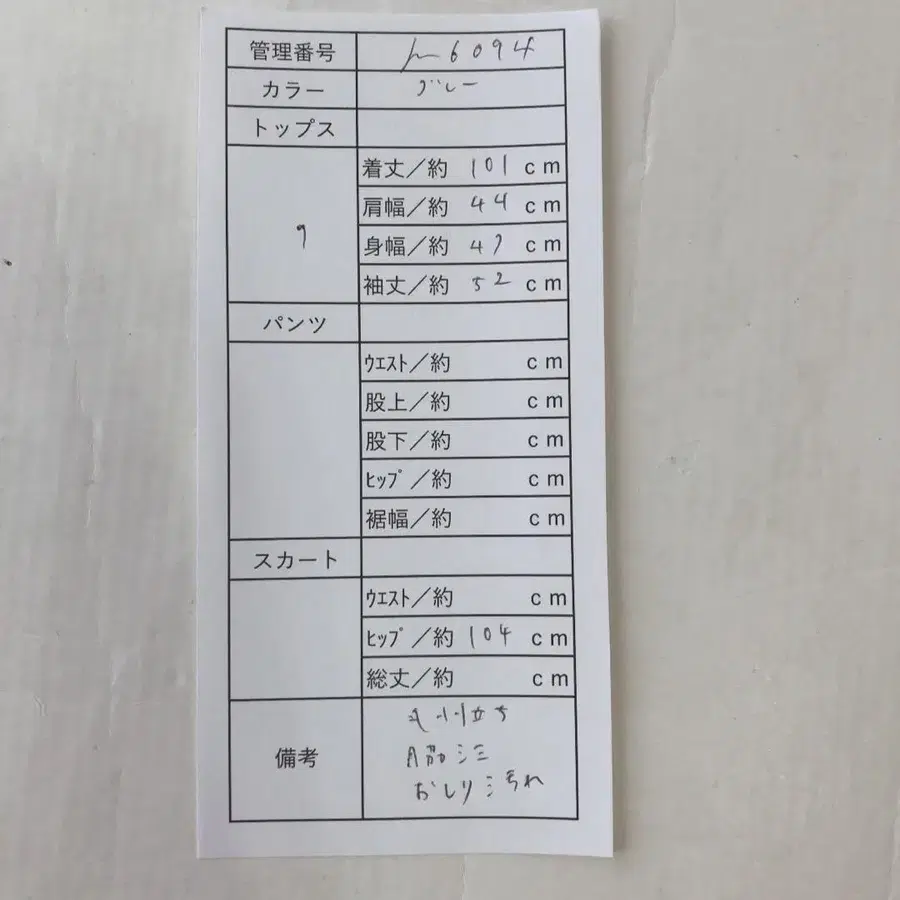 管理番号 m6094
カラー グレー
トップス
9
着丈／約 101 cm
肩幅／約 44 cm
身幅／約 47 cm
袖丈／約 52 cm
パンツ
ｳｴｽﾄ／約 cm
股上／約 cm
股下／約 cm
ﾋｯﾌﾟ／約 cm
裾幅／約 cm
スカート
ｳｴｽﾄ／約 cm
ﾋｯﾌﾟ／約 104 cm
総丈／約 cm
備考
毛羽立ち
脇シミ
おしり汚れ